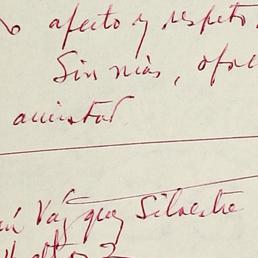 afecto y respeto.
Sin más,
amistad
Vázquez Silvestre